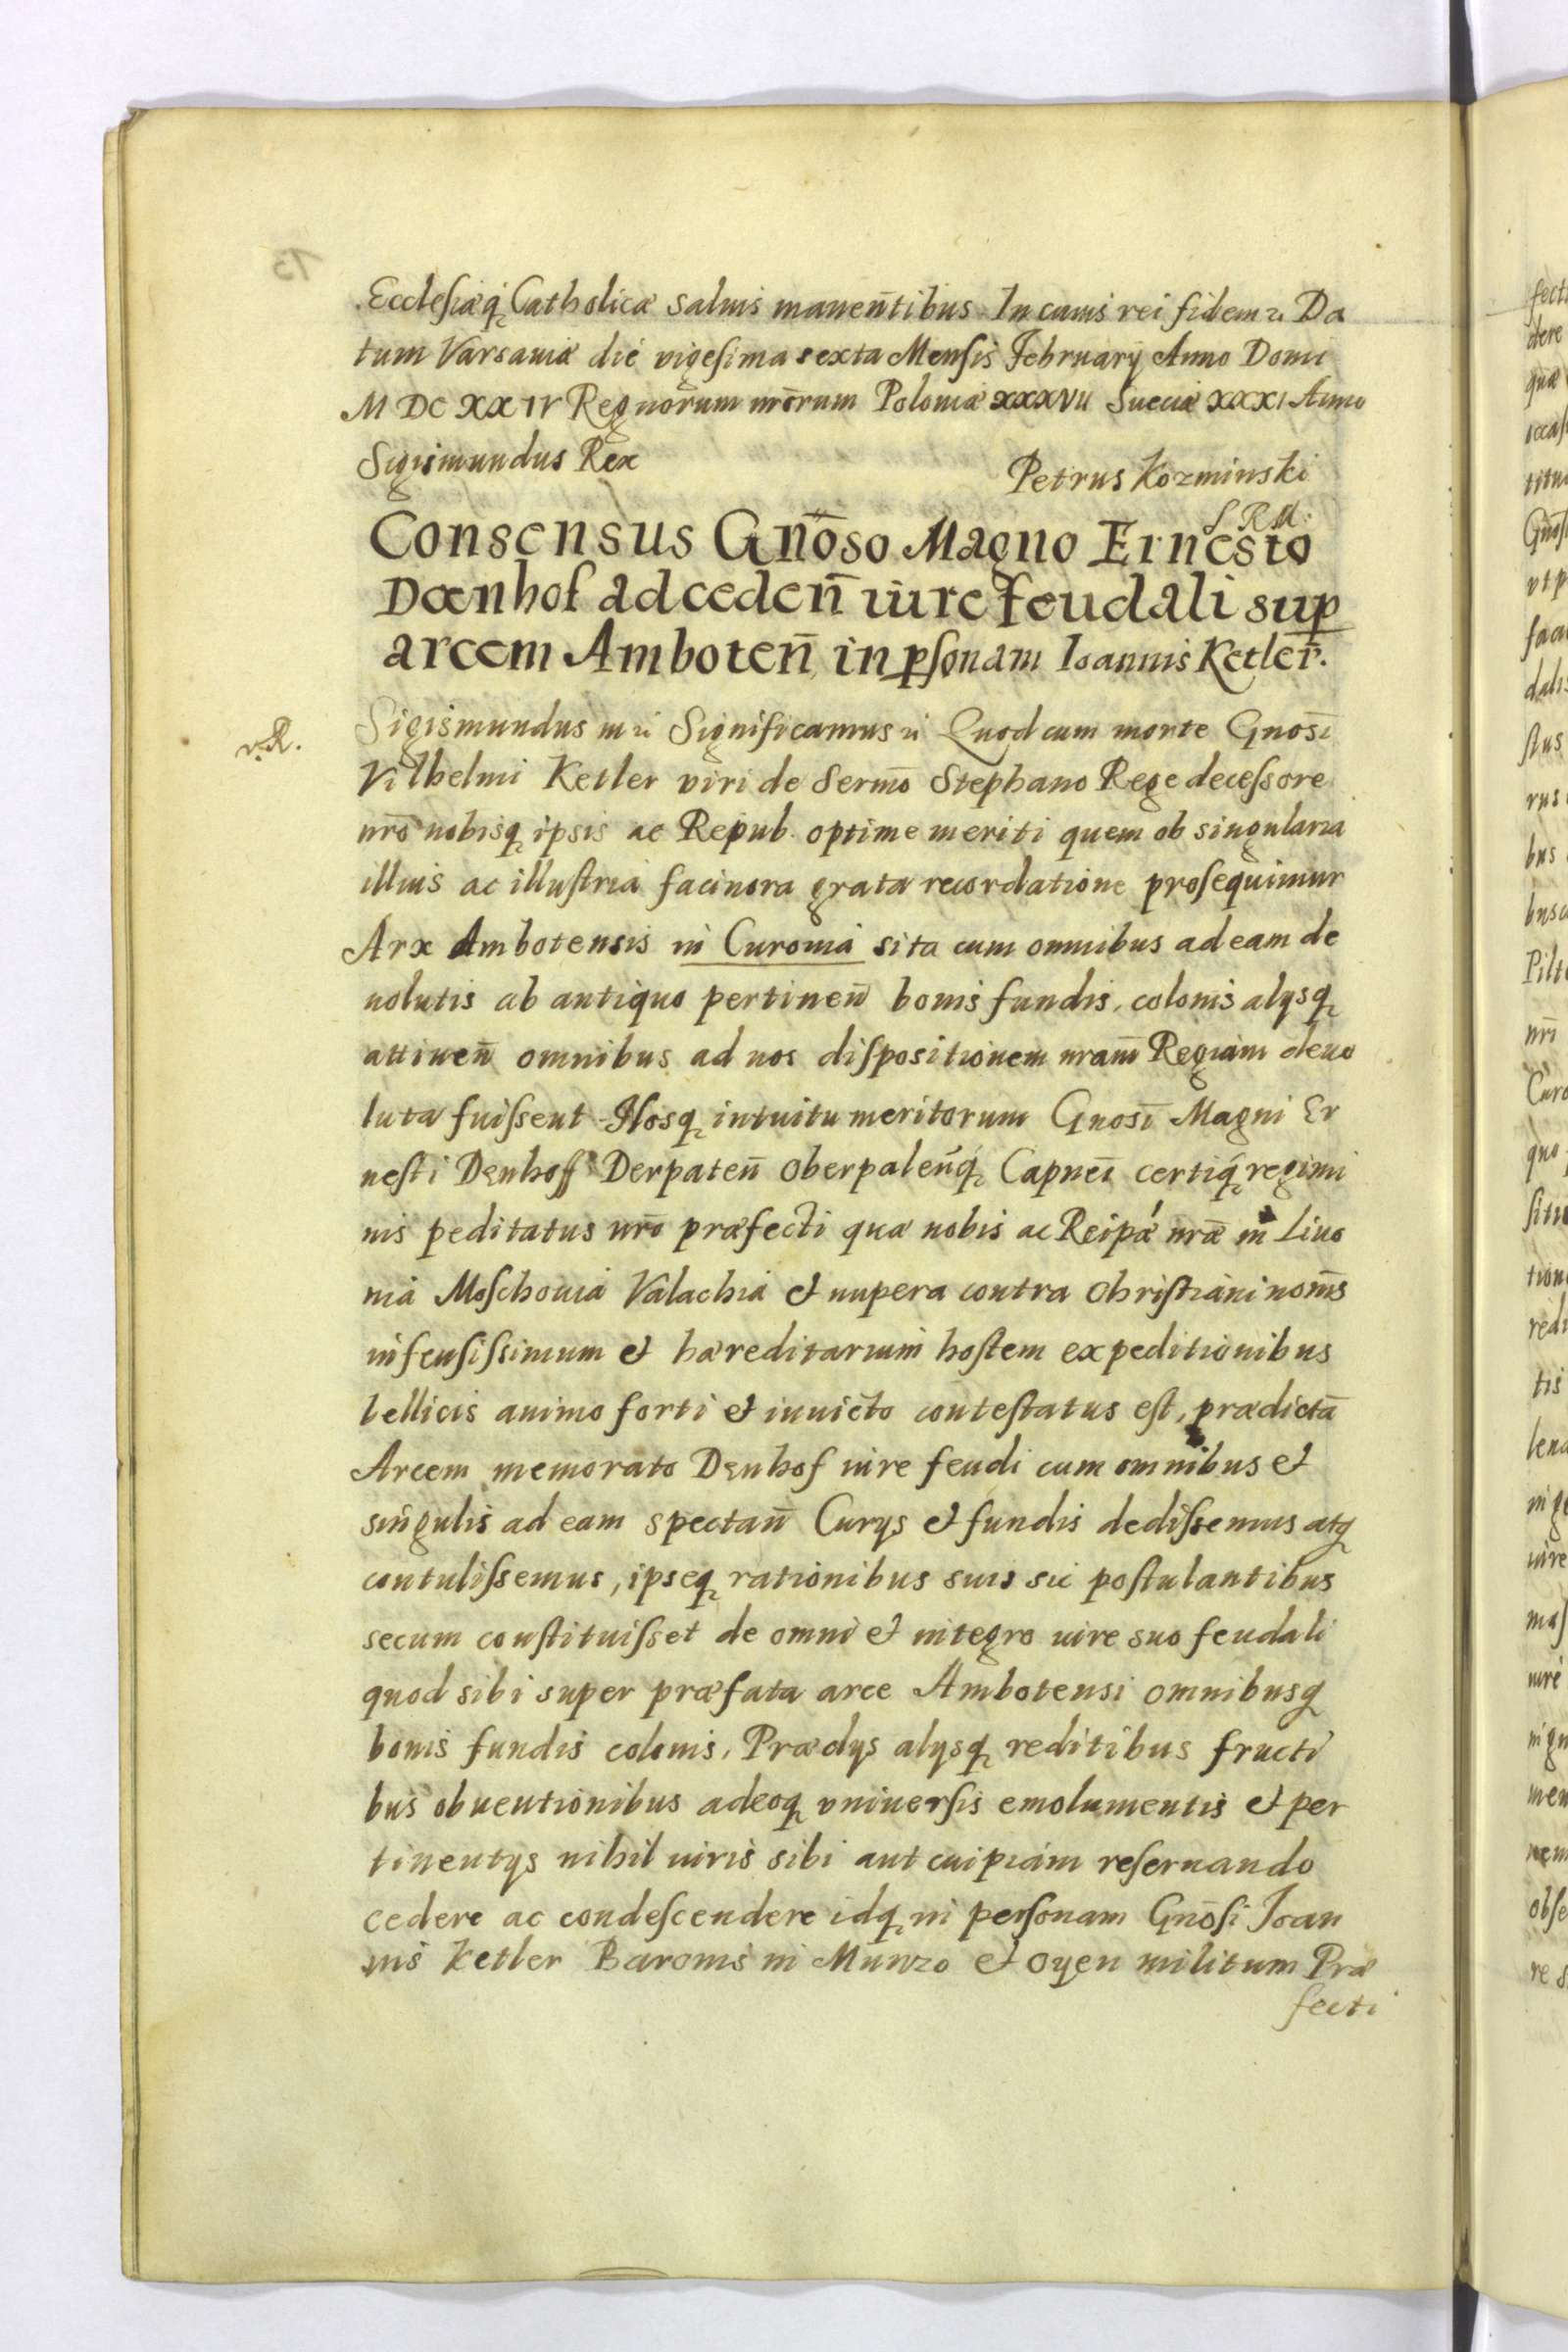 Ecclesiæq Catholicæ saluis manentibus. In cuius rei fidem ꝛ. Da
tum Varsauiæ die vigesima sexta Mensis February Anno Domi
M DC XXIV Regnorum nr̄orum Poloniæ XXXVII Sueciæ XXXI Anno
Sigismundus Rex
Petrus Kozminski
S R M.
Consensus Gnōso Magno Ernesto
Doenhof ad ceden̄ iure feudali sup
arcem Amboten̄ in psonam Ioannis Ketler.
Sigismundus III ꝛ Significamus ꝛ Quod cum morte Gnosi
Vilhelmi Ketler viri de Sermō Stephano Rege decessore
nrō nobisq ipsis ac Repub. optime meriti quem ob singularia
illius ac illustria facinora grata recordatione prosequimur
Arx Ambotensis in Curonia sita cum omnibus ad eam de
uolutis ab antiquo pertinen̄ bonis fundis, colonis alysq
attinen̄ omnibus ad nos dispositionem nram̄ Regiam deuo
luta fuissent Nosq intuitu meritorum Gnosi Magni Er
nesti Denhoff Derpaten̄ Oberpalen̄q Capnei certiq regimi
nis peditatus nrō præfecti quæ nobis ac Reipæ nræ in Liuo
nia Moschouia Valachia et nupera contra Christiani nom̄s
infensissimum et hæreditarium hostem expeditionibus
bellicis animo forti et inuicto contestatus est, prædictā
Arcem memorato Denhof iure feudi cum omnibus et
singulis ad eam spectan̄ Curys et fundis dedissemus atq
contulissemus, ipseq rationibus suis sic postulantibus
secum constituisset de omni et integro iure suo feudali
quod sibi super præfata arce Ambotensi omnibusq
bonis fundis colonis, Prædys alysq reditibus fructi
bus obuentionibus adeoq vniuersis emolumentis et per
tinentys nihil iuris sibi aut cuipiam reseruando
cedere ac condescendere idq in personam Gnōsi Ioan
nis Ketler Baronis in Munzo et Oyen militum Præ
fecti